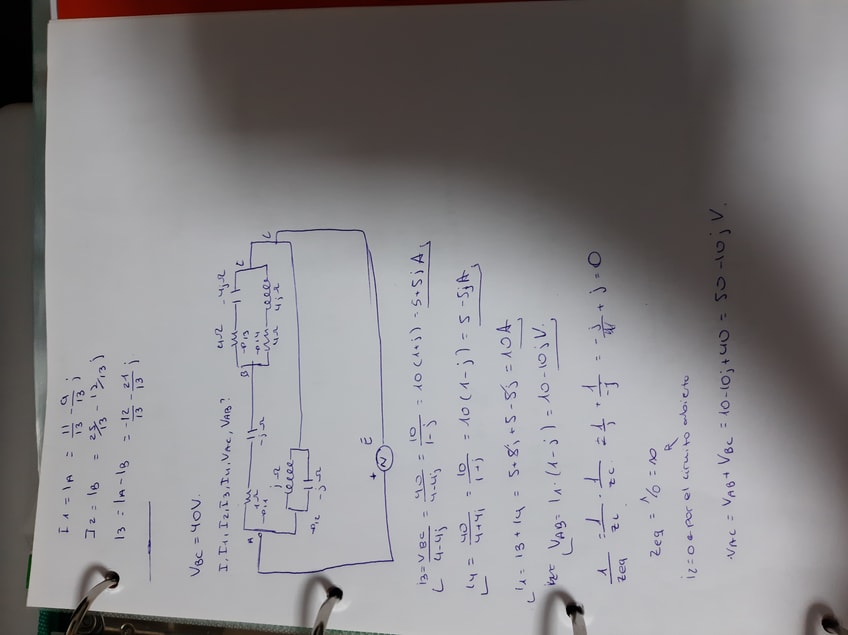 I1 = IA = 11/13 - 9/13 j
I2 = IB = 23/13 - 12/13 j
I3 = IA - IB = -12/13 - 21/13 j
VBC = 40V.
I, I1, I2, I3, I4, VAC, VAB?
A 1Ω -jΩ B 4Ω -4jΩ C C
→i1 →i3
→i4 4Ω 4jΩ
→i2 jΩ
-jΩ
+ N Ē
i3 = VBC/4-4j = 40/4-4j = 10/1-j = 10(1+j) = 5+5jA
i4 = 40/4+4j = 10/1+j = 10(1-j) = 5-5jA
i1 = i3 + i4 = 5+5j+5-5j = 10A
VAB = I1·(1-j) = 10-10jV.
1/Zeq = 1/ZL · 1/ZC = 1/j + 1/-j = -j + j = 0
Zeq = 1/0 = ∞
i2 = 0 por el circuito abierto
VAC = VAB + VBC = 10-10j+40 = 50-10j V.